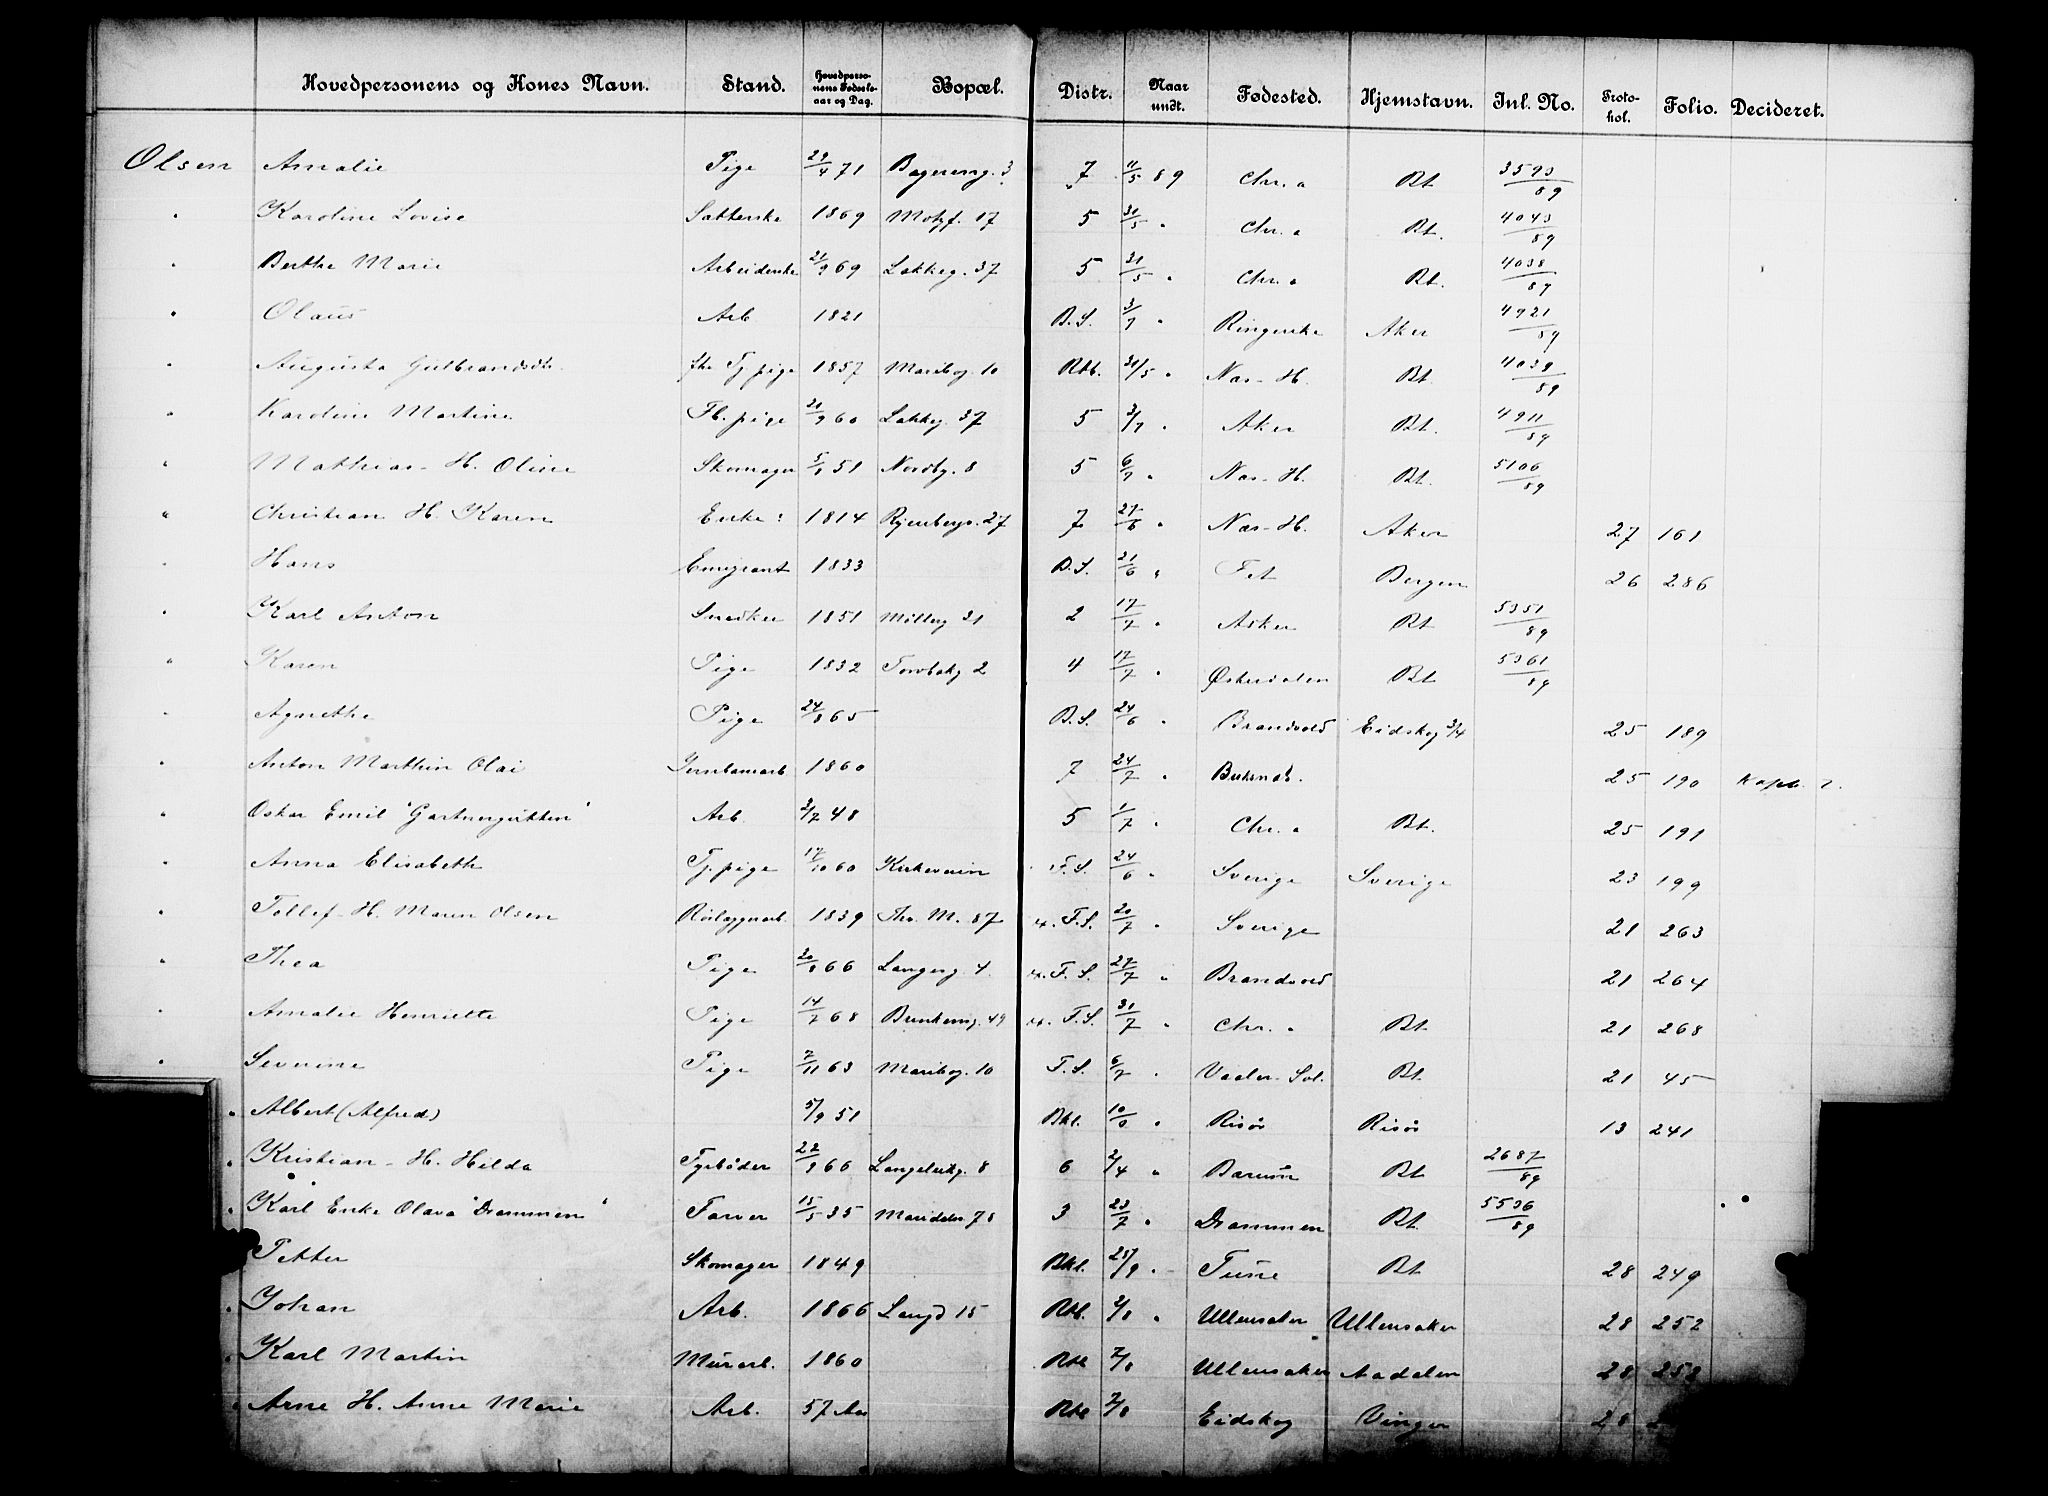 Hovedpersonens og Kones Navn. Stand. Hovedperso-nens Fødsels-aar og Dag. Bopæl. Distr. Naar undt. Fødested. Hjemstavn. Inl. No. Proto-kol. Folio. Decideret.
Olsen Amalie Pige 29/4 71 Bagereng. 3 7 11/5 89 Chr.a Bt 3593/89
" Karoline Lovise 1869 Motzf. 17 5 31/5 " Chr.a Bt. 4043/89
" Berthe Marie Arbeiderske 21/9 69 Lakkeg. 37 5 31/5 " Chr.a Bt. 4038/89
" Olaus Arb 1821 B.S. 3/7 " Ringerike Aker 4921/89
" Augusta Gulbrandsdtr. Tj pige 1857 Maribog. 10 Rbl. 31/5 " Næs-H. Bt. 4039/89
" Karoline Martine Fb. pige 21/9 60 Lakkeg 37 5 3/7 " Aker Bt. 4911/89
" Mathias - H. Oline Skomager 5/8 51 Nordbg. 8 5 6/7 " Næs-H. Bt. 5106/89
" Christian H. Karen Enke: 1814 Ryenbergs. 27 7 27/6 " Næs-H. Aker 27 161
" Hans Emigrant 1833 B.S. 21/6 " Fet Bergen 26 286
" Karl Anton Snedker 1851 Mølleg 31 2 17/7 " Asker Bt 5351/89
" Karen Pige 1832 Torvbakg 2 4 17/7 " Østerdalen Bt 5361/89
" Agnethe Pige 24/8 65 B.S. 24/6 " Brandvold Eidskog 3/4 25 189
" Anton Marthin Olai Jernbanearb 1860 7 24/7 " Buksnæs. 25 190 Kapt. 2.
" Oskar Emil "Gartnergutten" Arb. 3/7 48 5 1/7 " Chr.a Bt. 25 191
" Anna Elisabeth Tj. pige 17/10 60 Kirkeveien F.S. 24/6 " Sverige Sverige 23 199
" Tollef - H. Maren Olsen Rørlæggerarb. 1839 Thv. M. 87 F.S. 20/7 " Sverige 21 263
" Thea Pige 20/8 66 Langesg. 4 F.S. 27/7 " Brandvold 21 264
" Amalie Henriette Pige 14/7 68 Brinkeng. 49 F.S. 31/7 " Chr.a Bt 21 268
" Severine Pige 7/11 63 Maribog. 10 F.S. 6/7 " Vaaler-Sol. Bt. 21 45
" Albert (Alfred) 5/9 51 Bkl. 10/8 " Risør Risør 13 241
" Kristian - H. Hilda Fyrbøder 22/9 66 Langeleikg. 8 6 2/4 " Bærum Bt 2687/89
" Karl Enke Olava "Drammen" Farver 15/5 35 Maridalsv 78 3 23/7 " Drammen Bt. 5536/89
Petter Skomager 1849 Bkl. 25/9 " Tune Bt 28 249
" Johan Arb. 1866 Langd 15 Rbl. 2/8 " Ullensaker Ullensaker 28 252
" Karl Martin Murarb. 1860 Rbl 2/8 Ullensaker Aadalen 28 258
" Arne H. Anne Marie Arb. 57 Aar Rbl 2/8 Eidskog Vinger 28